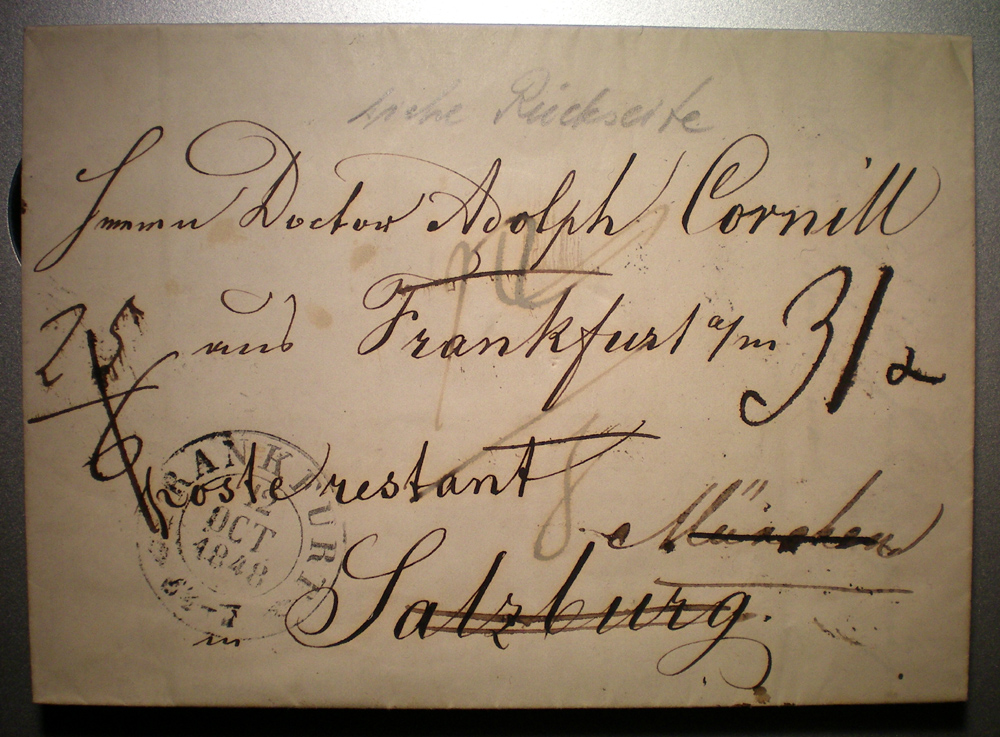 siehe Rückseite
Herrn Doctor Adolph Cornill
aus Frankfurt a/m
31
Poste restant
München
in Salzburg.
FRANKFURT
12
OCT
1848